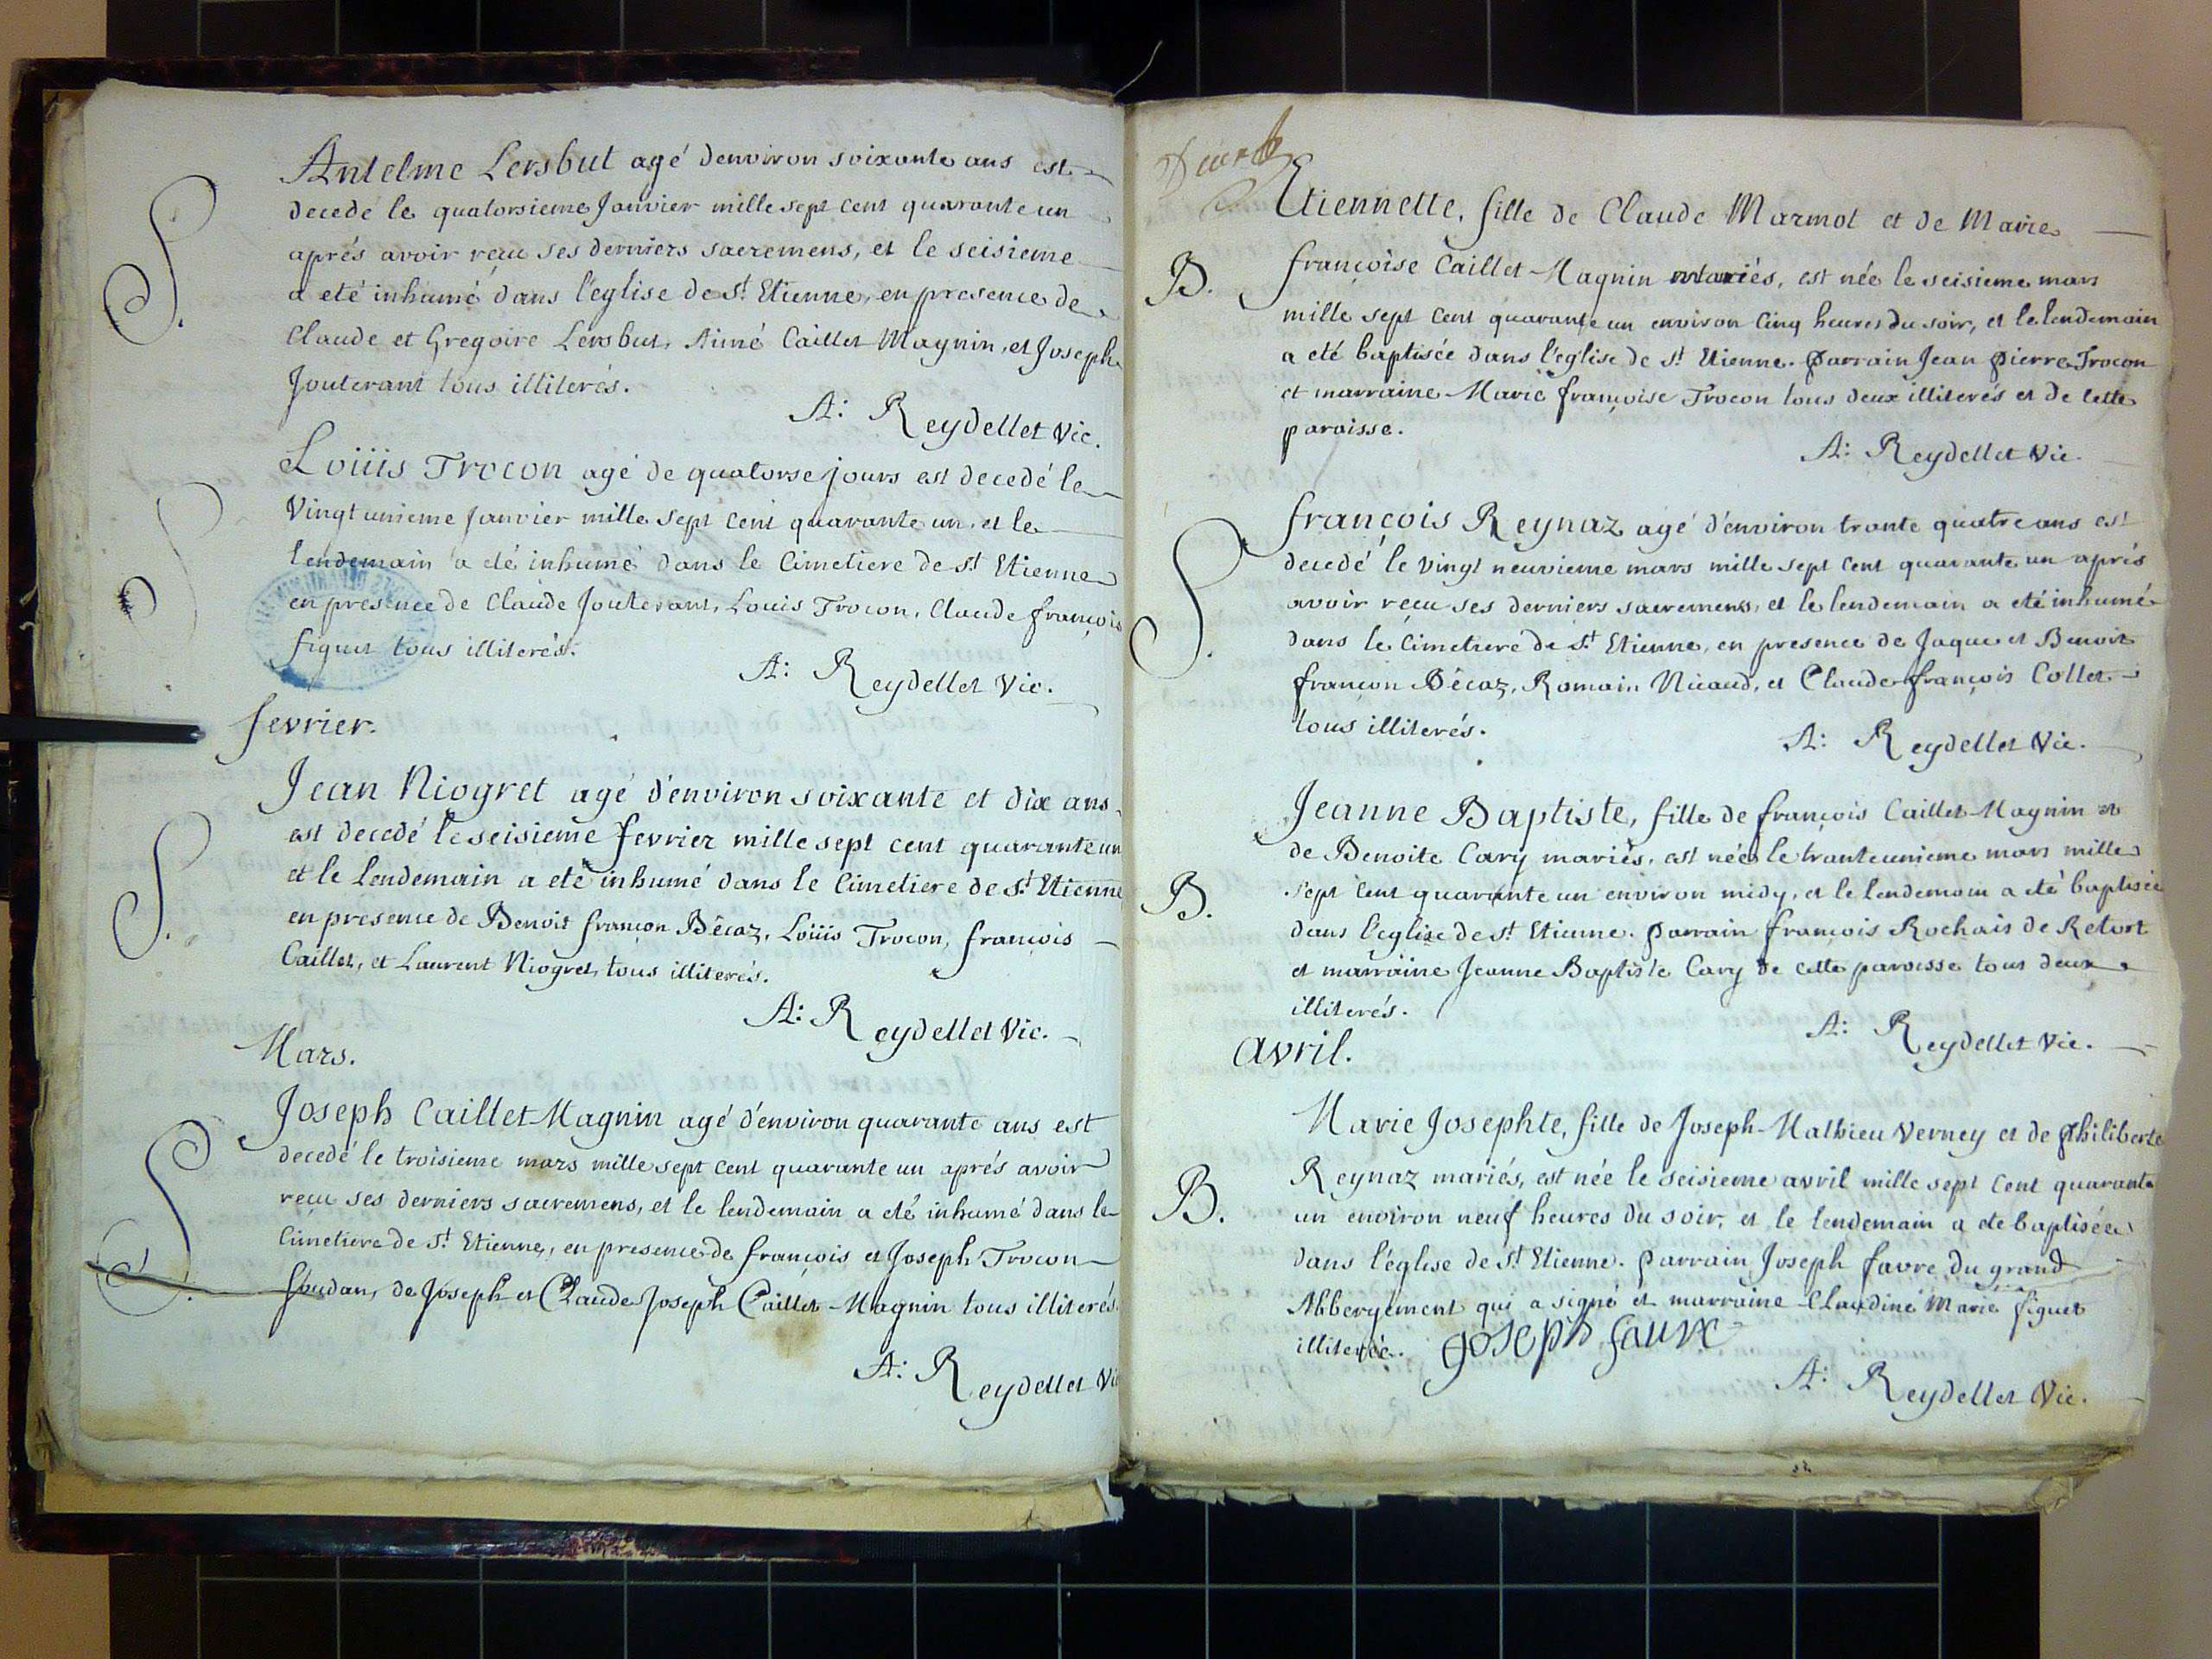 Antelme Lersbut agé denviron soixante ans est
S.
decedé le quatorsieme Janvier mille sept cent quarante un
aprés avoir reçu ses derniers sacremens, et le seisieme
a eté inhumé dans l'eglise de st Etienne, en presence de
Claude et Gregoire Lersbut, Aimé Caillet Magnin, et Joseph
Jouterant tous illiterés.
A: Reydellet Vic.
Loüis Trocon agé de quatorse jours est decedé le
S
Vingt unieme Janvier mille sept cent quarante un, et le
lendemain a eté inhumé dans le Cimetiere de st Etienne
en presence de Claude Jouterant, Louis Trocon, Claude françois
figuet tous illiterés.
A: Reydellet Vic.
fevrier.
Jean Niogret agé d'environ soixante et dix ans
S.
est decedé le seisieme fevrier mille sept cent quarante un
et le Lendemain a eté inhumé dans le Cimetiere de st Etienne
en presence de Benoit françon Bêcaz, Loüis Trocon, françois
Caillet, et Laurent Niogret, tous illiterés.
A: Reydellet Vic.
Mars.
Joseph Caillet Magnin agé d'environ quarante ans est
S.
decedé le troisieme mars mille sept cent quarante un aprés avoir
reçu ses derniers sacremens, et le lendemain a eté inhumé dans le
Cimetiere de st Etienne, en presence de françois et Joseph Trocon
foudan, de Joseph et Claude Joseph Caillet Magnin tous illiterés.
A: Reydellet Vic
Etiennette, fille de Claude Marmot et de Marie
B.
françoise Caillet Magnin mariés, est née le seisieme mars
mille sept cent quarante un environ Cinq heures du soir, et le lendemain
a eté baptisée dans l'eglise de st Etienne. Parrain Jean Pierre Trocon
et marraine Marie françoise Trocon tous deux illiterés et de cette
paroisse.
A: Reydellet Vic.
françois Reynaz agé d'environ trante quatre ans est
S.
decedé le vingt neuvieme mars mille sept cent quarante un aprés
avoir reçu ses derniers sacremens, et le lendemain a eté inhumé
dans le Cimetiere de st Etienne, en presence de Jaque et Benoit
françon Bêcaz, Romain Nicaud, et Claude françois Collet
tous illiterés.
A: Reydellet Vic.
Jeanne Baptiste, fille de françois Caillet Magnin et
de Benoite Cary mariés, est née le tranteunieme mars mille
B.
sept cent quarante un environ midy, et le lendemain a eté baptisée
dans l'eglise de st Etienne. Parrain françois Rochais de Retort
et marraine Jeanne Baptiste Cary de cette paroisse tous deux
illiterés.
A: Reydellet Vic.
avril.
Marie Josephte, fille de Joseph Mathieu Verney et de Philiberte
B.
Reynaz mariés, est née le seisieme avril mille sept cent quarante
un environ neuf heures du soir, et le lendemain a eté baptisée
dans l'église de st Etienne. Parrain Joseph favre du grand
Abbergement qui a signé et marraine Claudine Marie figuet
illiterée. joseph faure
A: Reydellet Vic.